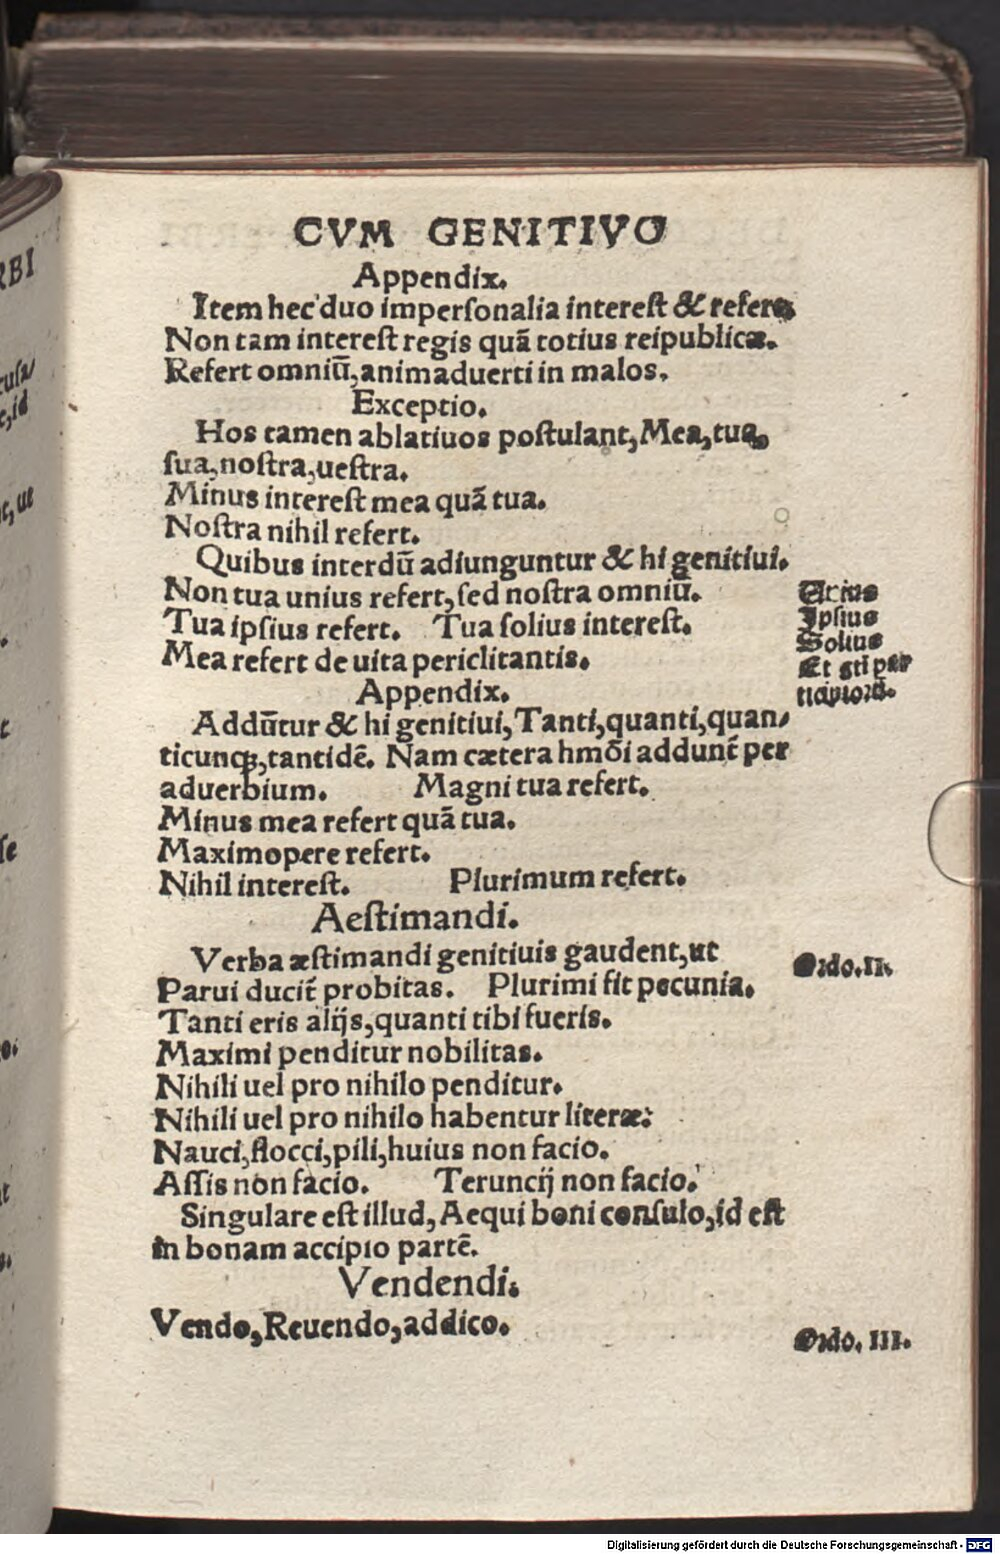 CVM GENITIVO
Appendix.
Item hec duo impersonalia interest & refert,
Non tam interest regis quã totius reipublicæ.
Refert omniũ, animaduerti in malos.
Exceptio.
Hos tamen ablatiuos postulant, Mea, tua,
sua, nostra, uestra.
Minus interest mea quã tua.
Nostra nihil refert.
Quibus interdũ adiunguntur & hi genitiui.
Non tua unius refert, sed nostra omniũ.
Tua ipsius refert. Tua solius interest.
Mea refert de uita periclitantis.
Appendix.
Addũtur & hi genitiui, Tanti, quanti, quan/
ticunqꝫ, tantidẽ. Nam cætera hmõi addunt̃ per
aduerbium. Magni tua refert.
Minus mea refert quã tua.
Maximopere refert.
Nihil interest. Plurimum refert.
Aestimandi.
Verba æstimandi genitiuis gaudent, ut
Parui ducit̃ probitas. Plurimi fit pecunia.
Tanti eris alijs, quanti tibi fueris.
Maximi penditur nobilitas.
Nihili uel pro nihilo penditur.
Nihili uel pro nihilo habentur literæ:
Nauci, flocci, pili, huius non facio.
Assis non facio. Teruncij non facio.
Singulare est illud, Aequi boni consulo, id est
in bonam accipio partẽ.
Vendendi.
Vendo, Reuendo, addico.
Ipsius
Solius
Et
Ordo. II.
Ordo. III.
RBI
cusa/
e, id
t, ut
se
Digitalisierung gefördert durch die Deutsche Forschungsgemeinschaft - DFG